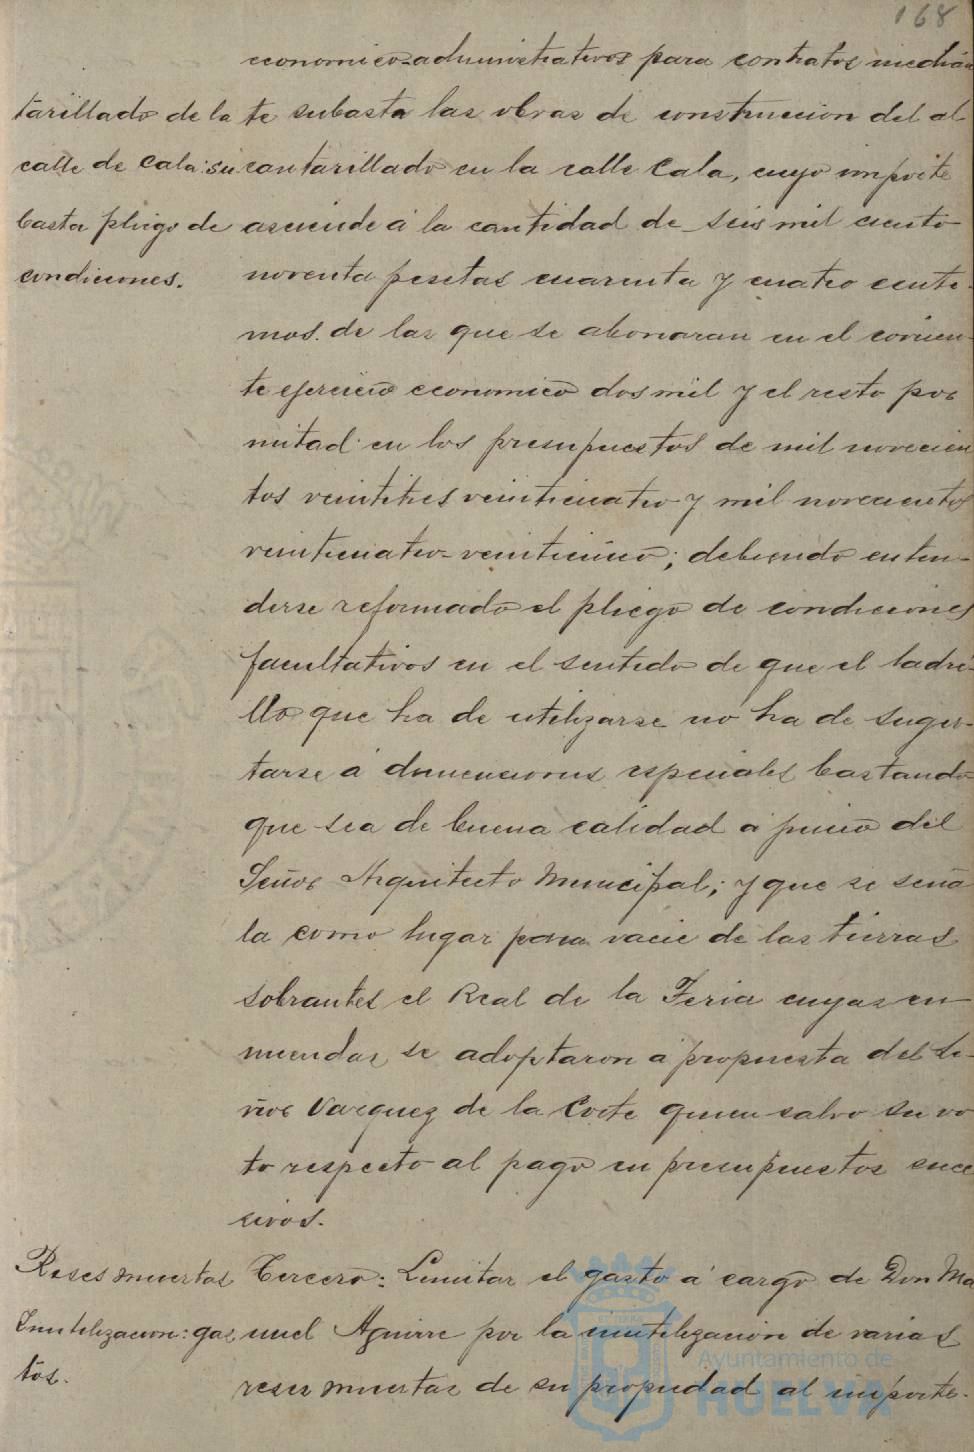 168
economico-administrativos para contratos median
tarillado de la
calle de Cala: su
basta pliego de
condiciones.
te subasta las obras de construccion del al
cantarillado en la calle Cala, cuyo importe
asciende á la cantidad de seis mil ciento
noventa pesetas cuarenta y cuatro centi-
mos. de las que se abonaran en el corrien-
te ejercicio economico dos mil y el resto por
mitad en los presupuestos de mil novecien
tos veintitres veinticuatro y mil novecientos
veinticuatro-veinticinco; debiendo enten-
derse reformado el pliego de condiciones
facultativos en el sentido de que el ladri-
llo que ha de utilizarse no ha de suger-
tarse á dimenciones especiales bastando
que sea de buena calidad á juicio del
Señor Arquitecto Municipal; y que se seña
la como lugar para vacie de las tierras
sobrantes el Real de la Feria cuyas en
miendas se adoptaron á propuesta del Se-
ñor Vazquez de la Corte quien salvo su vo
to respecto al pago en presupuestos suce
sivos.
Reses muertas
Inutilizacion: gas
tos.
Tercero: Limitar el gasto á cargo de Don Ma
nuel Aguirre por la inutilizacion de varias
reses muertas de su propiedad al importe.
Ayuntamiento de
HUELVA